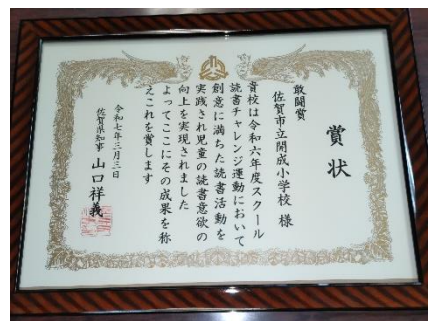 賞状
敢闘賞
佐賀市立開成小学校 様
貴校は令和六年度スクール
読書チャレンジ運動において
創意に満ちた読書活動を
実践され児童の読書意欲の
向上を実現されました
よってここにその成果を称
えこれを賞します
令和七年三月三日
佐賀県知事 山口祥義